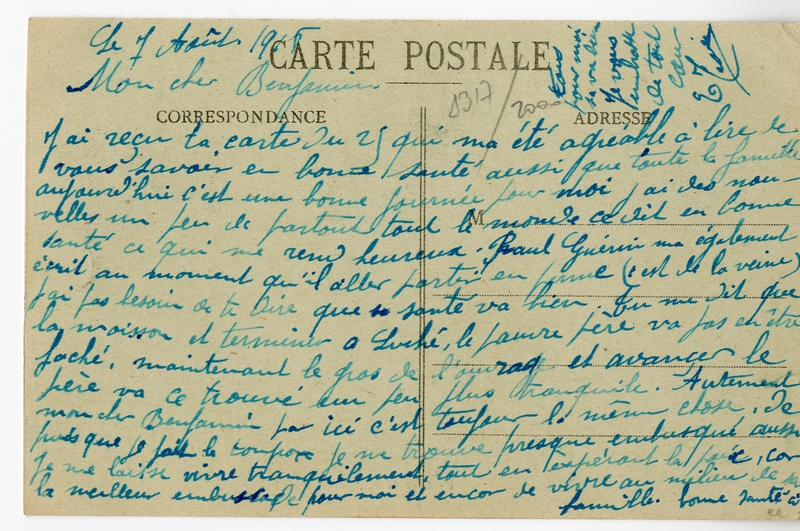 Le 7 Août 1915
CARTE POSTALE
Mon cher Benjamin
1317
2000
CORRESPONDANCE
ADRESSE
M
J'ai recu ta carte du 25 qui ma été agréable à lire de
vous savoir en bonne santé aussi que toute la famille
aujourd'hui c'est une bonne journée pour moi j'ai des nou-
velles un peu de partout tout le monde ce dit en bonne
santé ce qui me rend heureux. Paul Guérin ma également
écrit au moment qu'il aller partir en perme (c'est de la veine)
j'ai pas besoin de te dire que sa santé va bien. Tu me dit que
la moisson et terminer a Luché, le pauvre père va pas en être
faché, maintenant le gros de l'ouvrag et avancer le
père va ce trouvé un peu plus tranquile. Autrement
mon cher Benjamin par ici c'est toujour la même chose, de
puis que je fait le je me trouve presque embusqué aussi
je me laisse vivre tranquilement, tout en espérant la paix, car
la meilleur embuscade pour moi et encor de vivre au milieu de sa
famille. bonne santé à
tous
pour moi
sa va bien
Je vous
embrasse
de tout
cœur